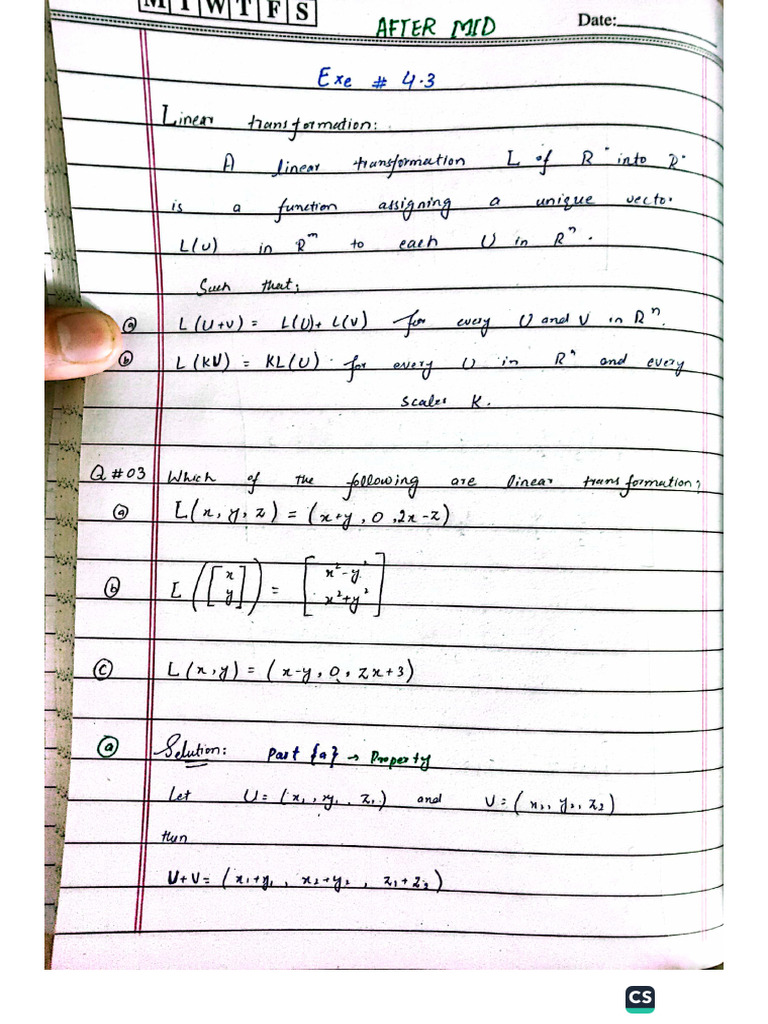 M T W T F S
AFTER MID
Date:
Exe # 4.3
Linear transformation:
A linear transformation L of Rⁿ into R
is a function assigning a unique vector
L(U) in Rᵐ to each U in Rⁿ.
Such that;
(a) L(U+V) = L(U)+ L(V) for every U and V in Rⁿ.
(b) L(KU) = KL(U) . for every U in Rⁿ and every
scaler K.
Q #03 Which of the following are linear transformation;
(a) L(x, y, z) = (x+y, 0, 2x-z)
(b) L([x y]) = [x²-y² x²+y²]
(c) L(x,y) = (x-y, 0, 2x+3)
(a) Solution: Part {a} → Property
Let U = (x₁, y₁, z₁) and V = (x₂, y₂, z₂)
then
U+V = (x₁+y₁, x₂+y₂, z₁+z₂)
CS